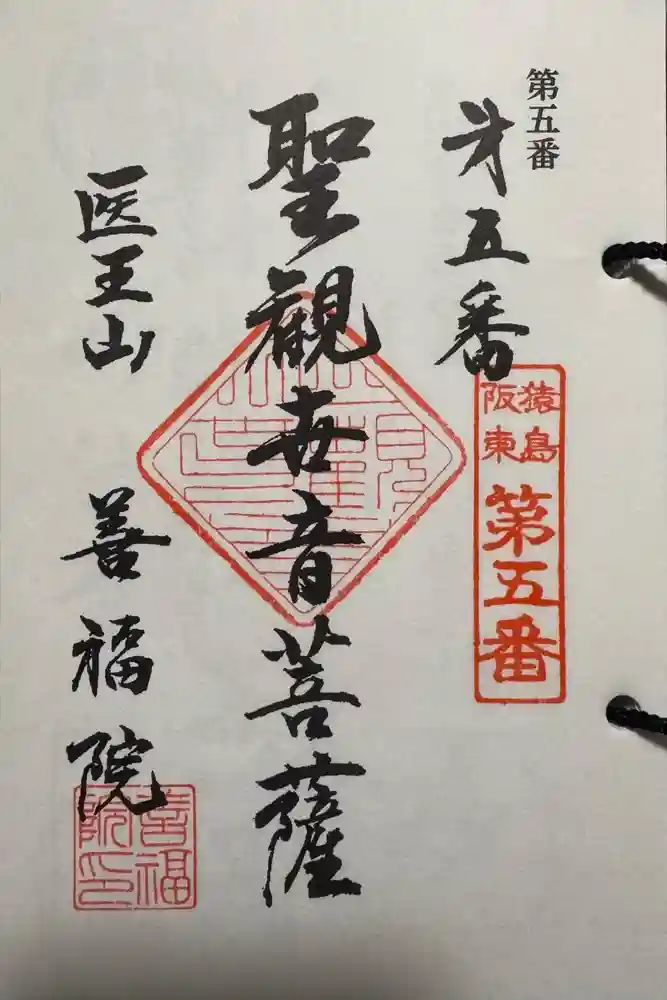 第五番
第五番
猿島
阪東
第五番
聖觀世音菩薩
医王山 善福院
善福
院印